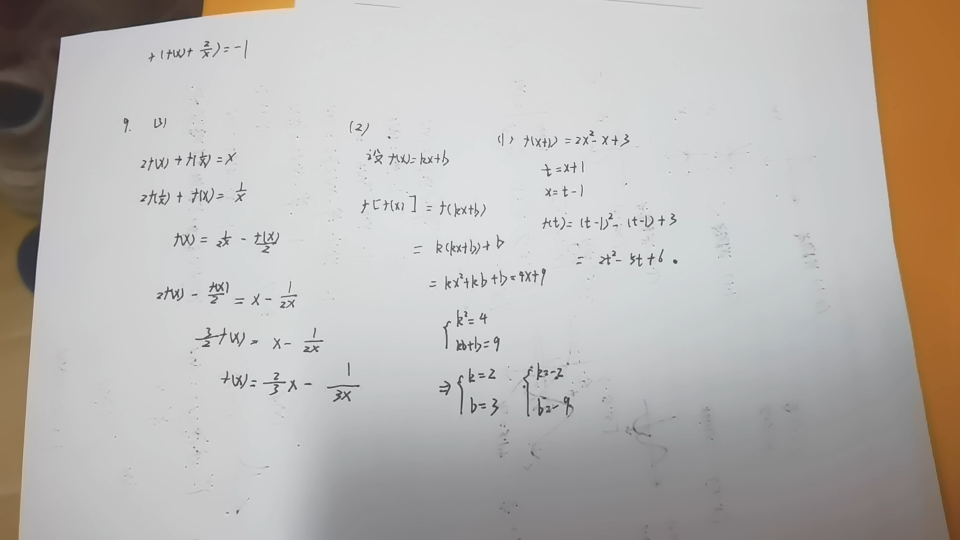 f(f(x)+2/x)=-1
9. (3)
2f(x)+f(1/x)=x
2f(1/x)+f(x)=1/x
f(x)=1/2x-f(x)/2
2f(x)-f(x)/2=x-1/2x
3/2f(x)=x-1/2x
f(x)=2/3x-1/3x
(2)
设f(x)=kx+b
f[f(x)]=f(kx+b)
=k(kx+b)+b
=kx²+kb+b=4x+9
{k²=4
kb+b=9
⇒{k=2 {k=-2
b=3 b=-9
(1) f(x+1)=2x²-x+3
t=x+1
x=t-1
f(t)=(t-1)²-(t-1)+3
=2t²-5t+6.